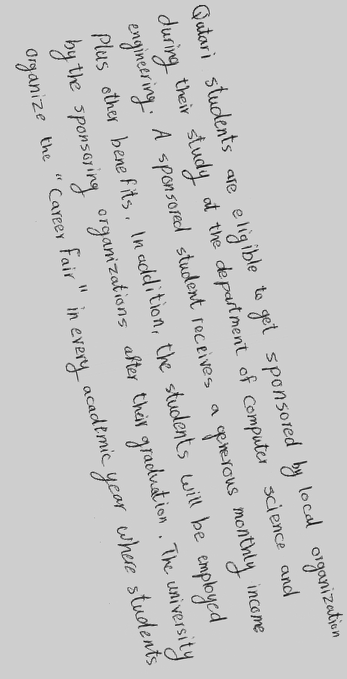 Qatari students are eligible to get sponsored by local organization
during their study at the department of Computer science and
engineering. A sponsored student receives a generous monthly income
Plus other benefits. In addition, the students will be employed
by the sponsoring organizations after their graduation. The university
organize the "Career fair" in every academic year where students